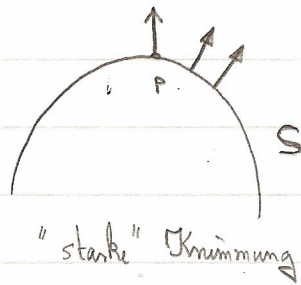 P
S
"starke" Krümmung